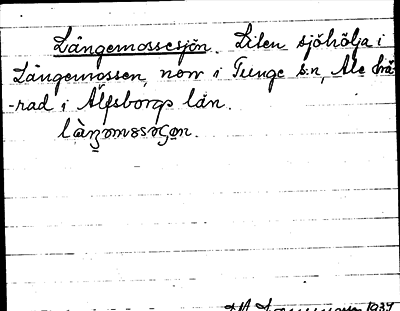 Långemossesjön. Liten sjöhölja i
Långemossen, norr i Tunge s:n, Ale hä-
-rad i Älfsborgs län.
1937